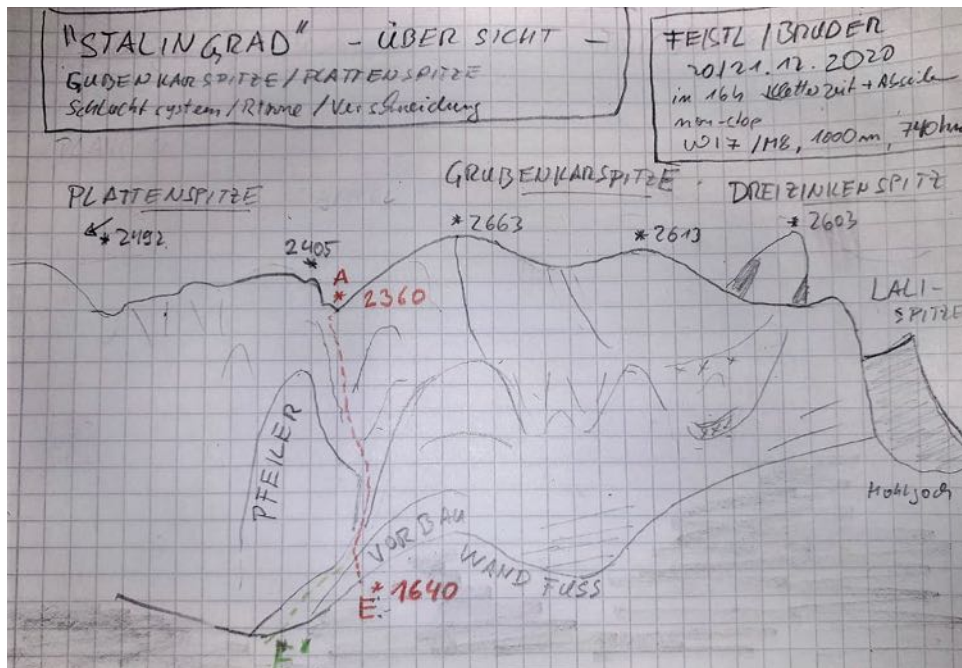 "STALINGRAD" - ÜBERSICHT -
GUBENKARSPITZE/PLATTENSPITZE
Schluchtsystem/Rinne/Verschneidung
FEISTL/BRUDER
20/21.12.2020
in 16h Kletterzeit + Abseilen
non-stop
WI7/M8, 1000m, 740hm
PLATTENSPITZE
2492
2405
A
2360
GRUBENKARSPITZE
2663
2613
DREIZINKENSPITZ
2603
LALI-
SPITZE
Hohljoch
PFEILER
VORBAU
WANDFUSS
E
1640
E'